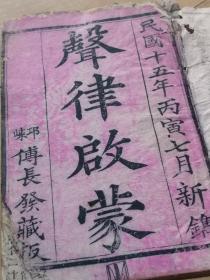 民國十五年丙寅七月新鐫
聲律啟蒙
邛崍
傅長發藏版